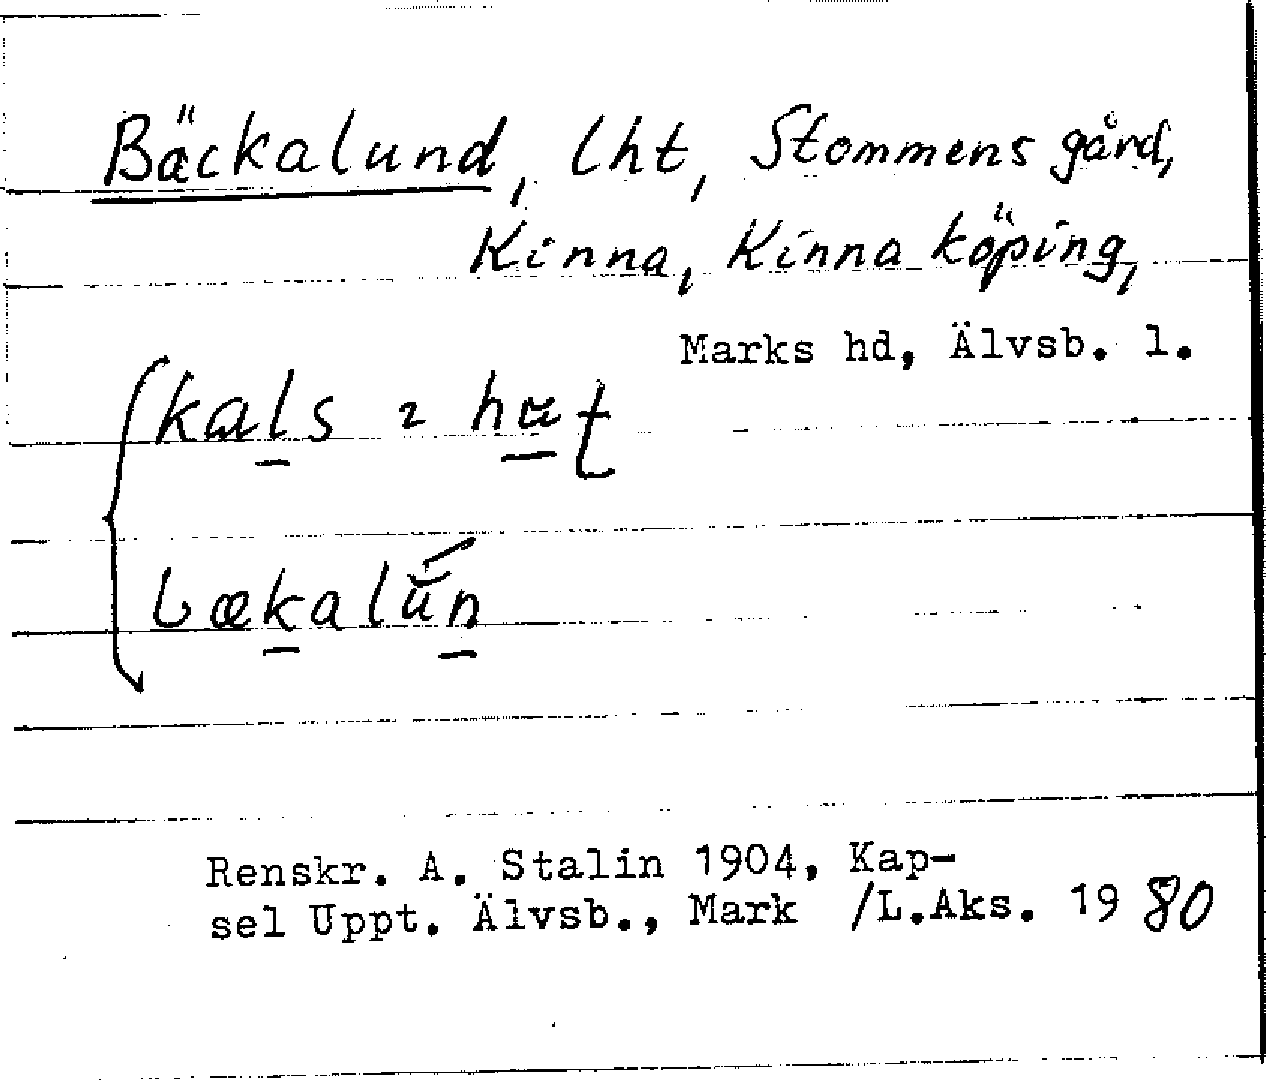 Bäckalund, lht, Stommens gård,
Kinna, Kinna köping,
Marks hd, Älvsb. l.
kals
bækalún
Renskr. A. Stalin 1904, Kap-
sel Uppt. Älvsb., Mark /L.Aks. 1980